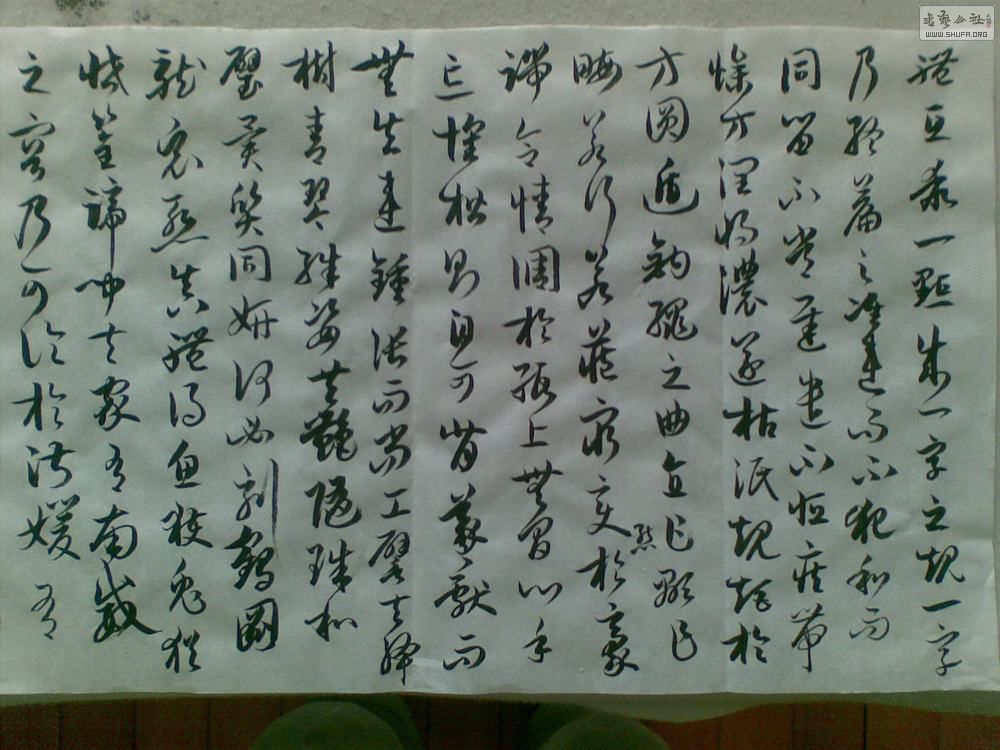 體互乖一點成一字之規一字
乃終篇之准違而不犯和而
同留不常遲遣不恒疾帶
燥方潤將濃遂枯泯規矩於
方圓遁鉤繩之曲直乍顯乍
晦若行若藏窮變態於豪
端合情調於紙上無間心手
忘懷楷則自可背羲獻而
無失違鍾張而尚工譬夫絳
樹青琴殊姿共艷隨珠和
璧異質同妍何必刻鶴圖
龍竟慚真體得魚獲兔猶
恡筌蹄聞夫家有南威
之容乃可論於淑媛有
書藝公社
WWW.SHUFA.ORG